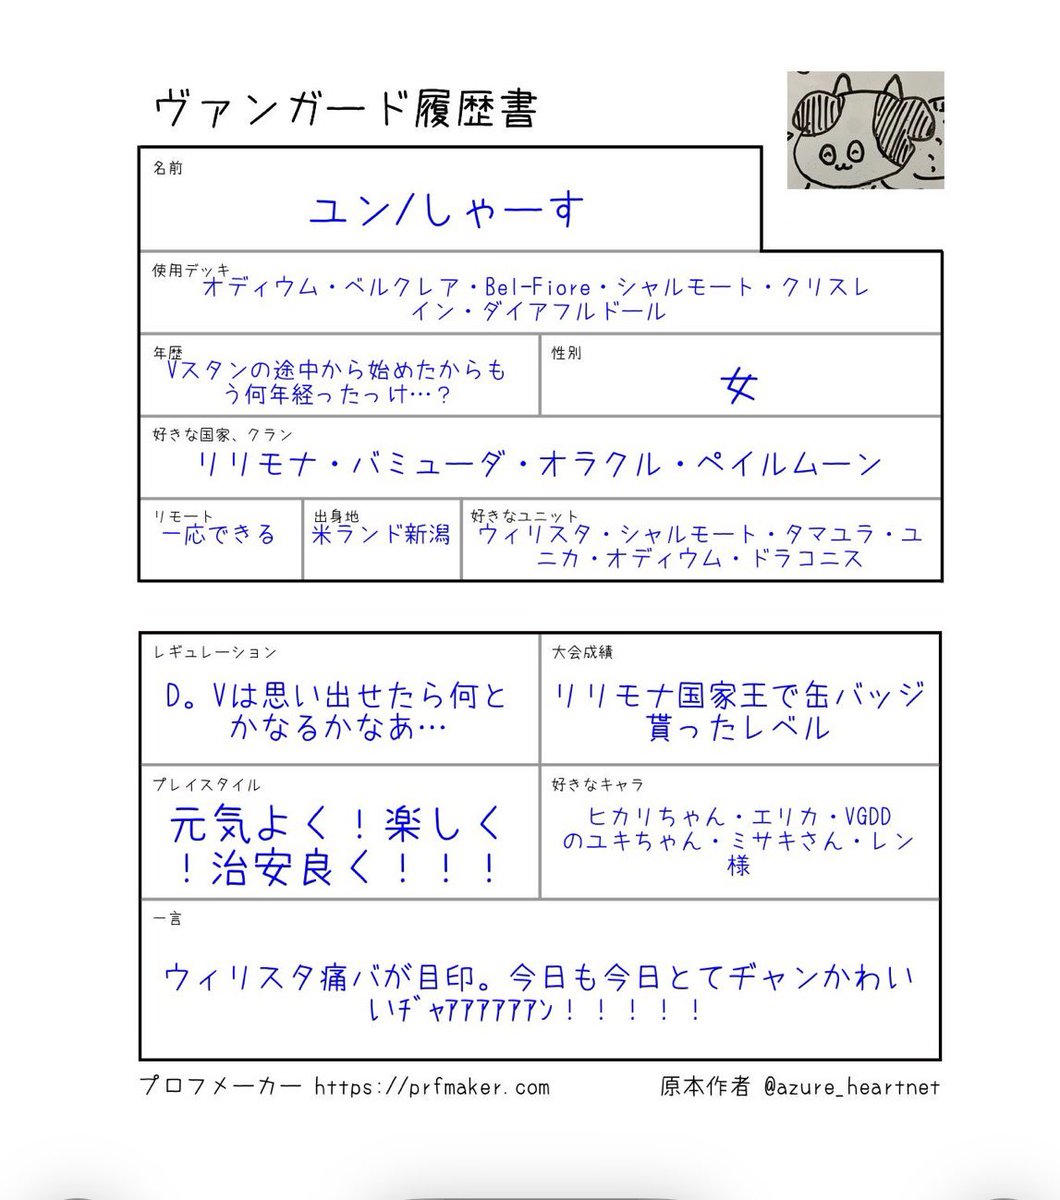 ヴァンガード履歴書
名前
ユン/しゃーす
使用デッキ
オディウム・ベルクレア・Bel-Fiore・シャルモート・クリスレ
イン・ダイアフルドール
年歴
Vスタンの途中から始めたからも
う何年経ったっけ…？
性別
女
好きな国家、クラン
リリモナ・バミューダ・オラクル・ペイルムーン
リモート
一応できる
出身地
米ランド新潟
好きなユニット
ウィリスタ・シャルモート・タマユラ・ユ
ニカ・オディウム・ドラコニス
レギュレーション
D。Vは思い出せたら何と
かなるかなあ…
大会成績
リリモナ国家王で缶バッジ
貰ったレベル
プレイスタイル
元気よく！楽しく
！治安良く！！！
好きなキャラ
ヒカリちゃん・エリカ・VGDD
のユキちゃん・ミサキさん・レン
様
一言
ウィリスタ痛バが目印。今日も今日とてヂャンかわい
いﾁﾞｬｱｱｱｱｱｱﾝ！！！！！
プロフメーカー https://prfmaker.com
原本作者 @azure_heartnet